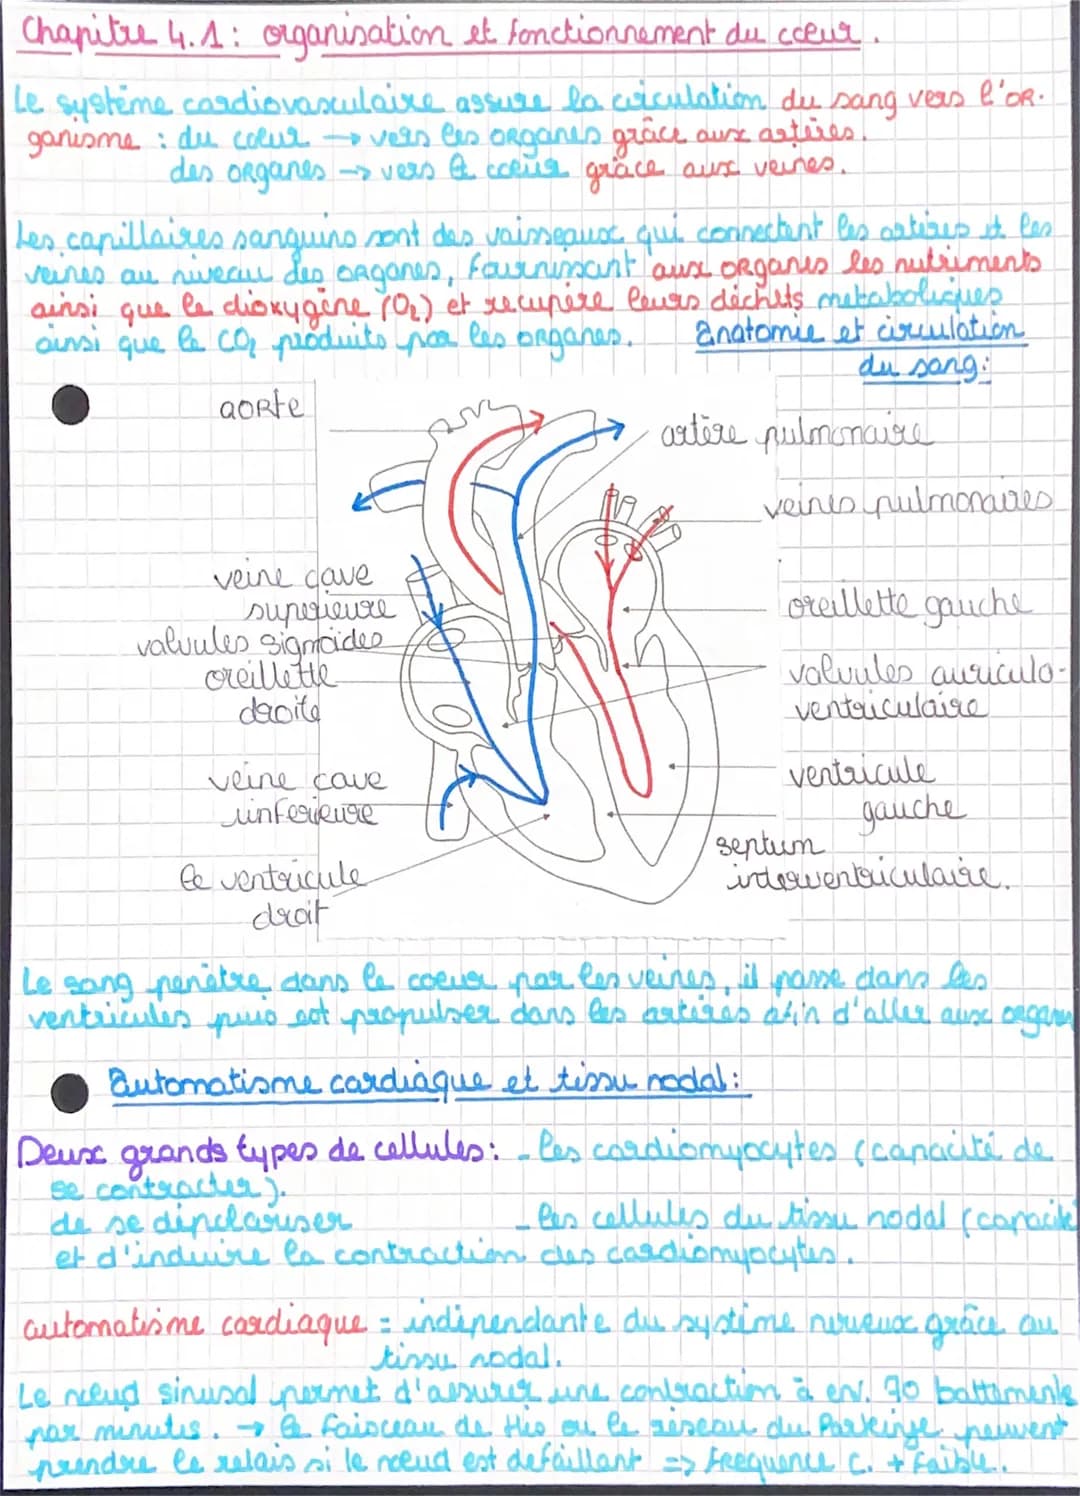 Chapitre 4.1 : organisation et fonctionnement du cœur.
Le système cardiovasculaire assure la circulation du sang vers l'or-
ganisme : du cœur → vers les organes grâce aux artères.
des organes → vers le cœur grâce aux veines.
Les capillaires sanguins sont des vaisseaux qui connectent les artères et les
veines au niveau des organes, fournissant aux organes les nutriments
ainsi que le dioxygène (O₂) et récupère leurs déchets métaboliques
ainsi que le CO₂ produits par les organes.
Anatomie et circulation
du sang :
aorte
artère pulmonaire
veines pulmonaires
veine cave
superieure
oreillette gauche
valvules sigmoïdes
oreillette
droite
valvules auriculo-
ventriculaire
veine cave
inferieure
ventricule
gauche
septum
interventriculaire.
le ventricule
droit
Le sang penètre dans le coeur par les veines, il passe dans les
ventricules puis est propulser dans les artères afin d'aller aux organes
Automatisme cardiaque et tissu nodal :
Deux grands types de cellules : - les cardiomyocytes (capacité de
se contracter).
de se dépolariser - les cellules du tissu nodal (capacité
et d'induire la contraction des cardiomyocytes.
automatisme cardiaque = indépendante du système nerveux grâce au
tissu nodal.
Le nœud sinusal permet d'assurer une contraction à env. 70 battements
par minutes. → le faisceau de His ou le réseau du Parkinge peuvent
prendre le relais si le nœud est défaillant => frequence c. + faible.